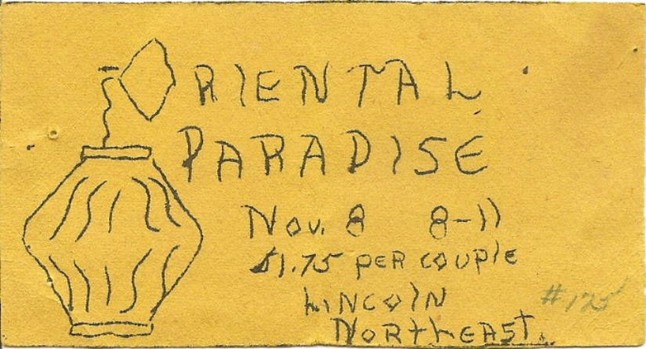 ORIENTAL
PARADISE
Nov. 8 8-11
$1.75 PER COUPLE
LINCOLN
NORTHEAST.
#125